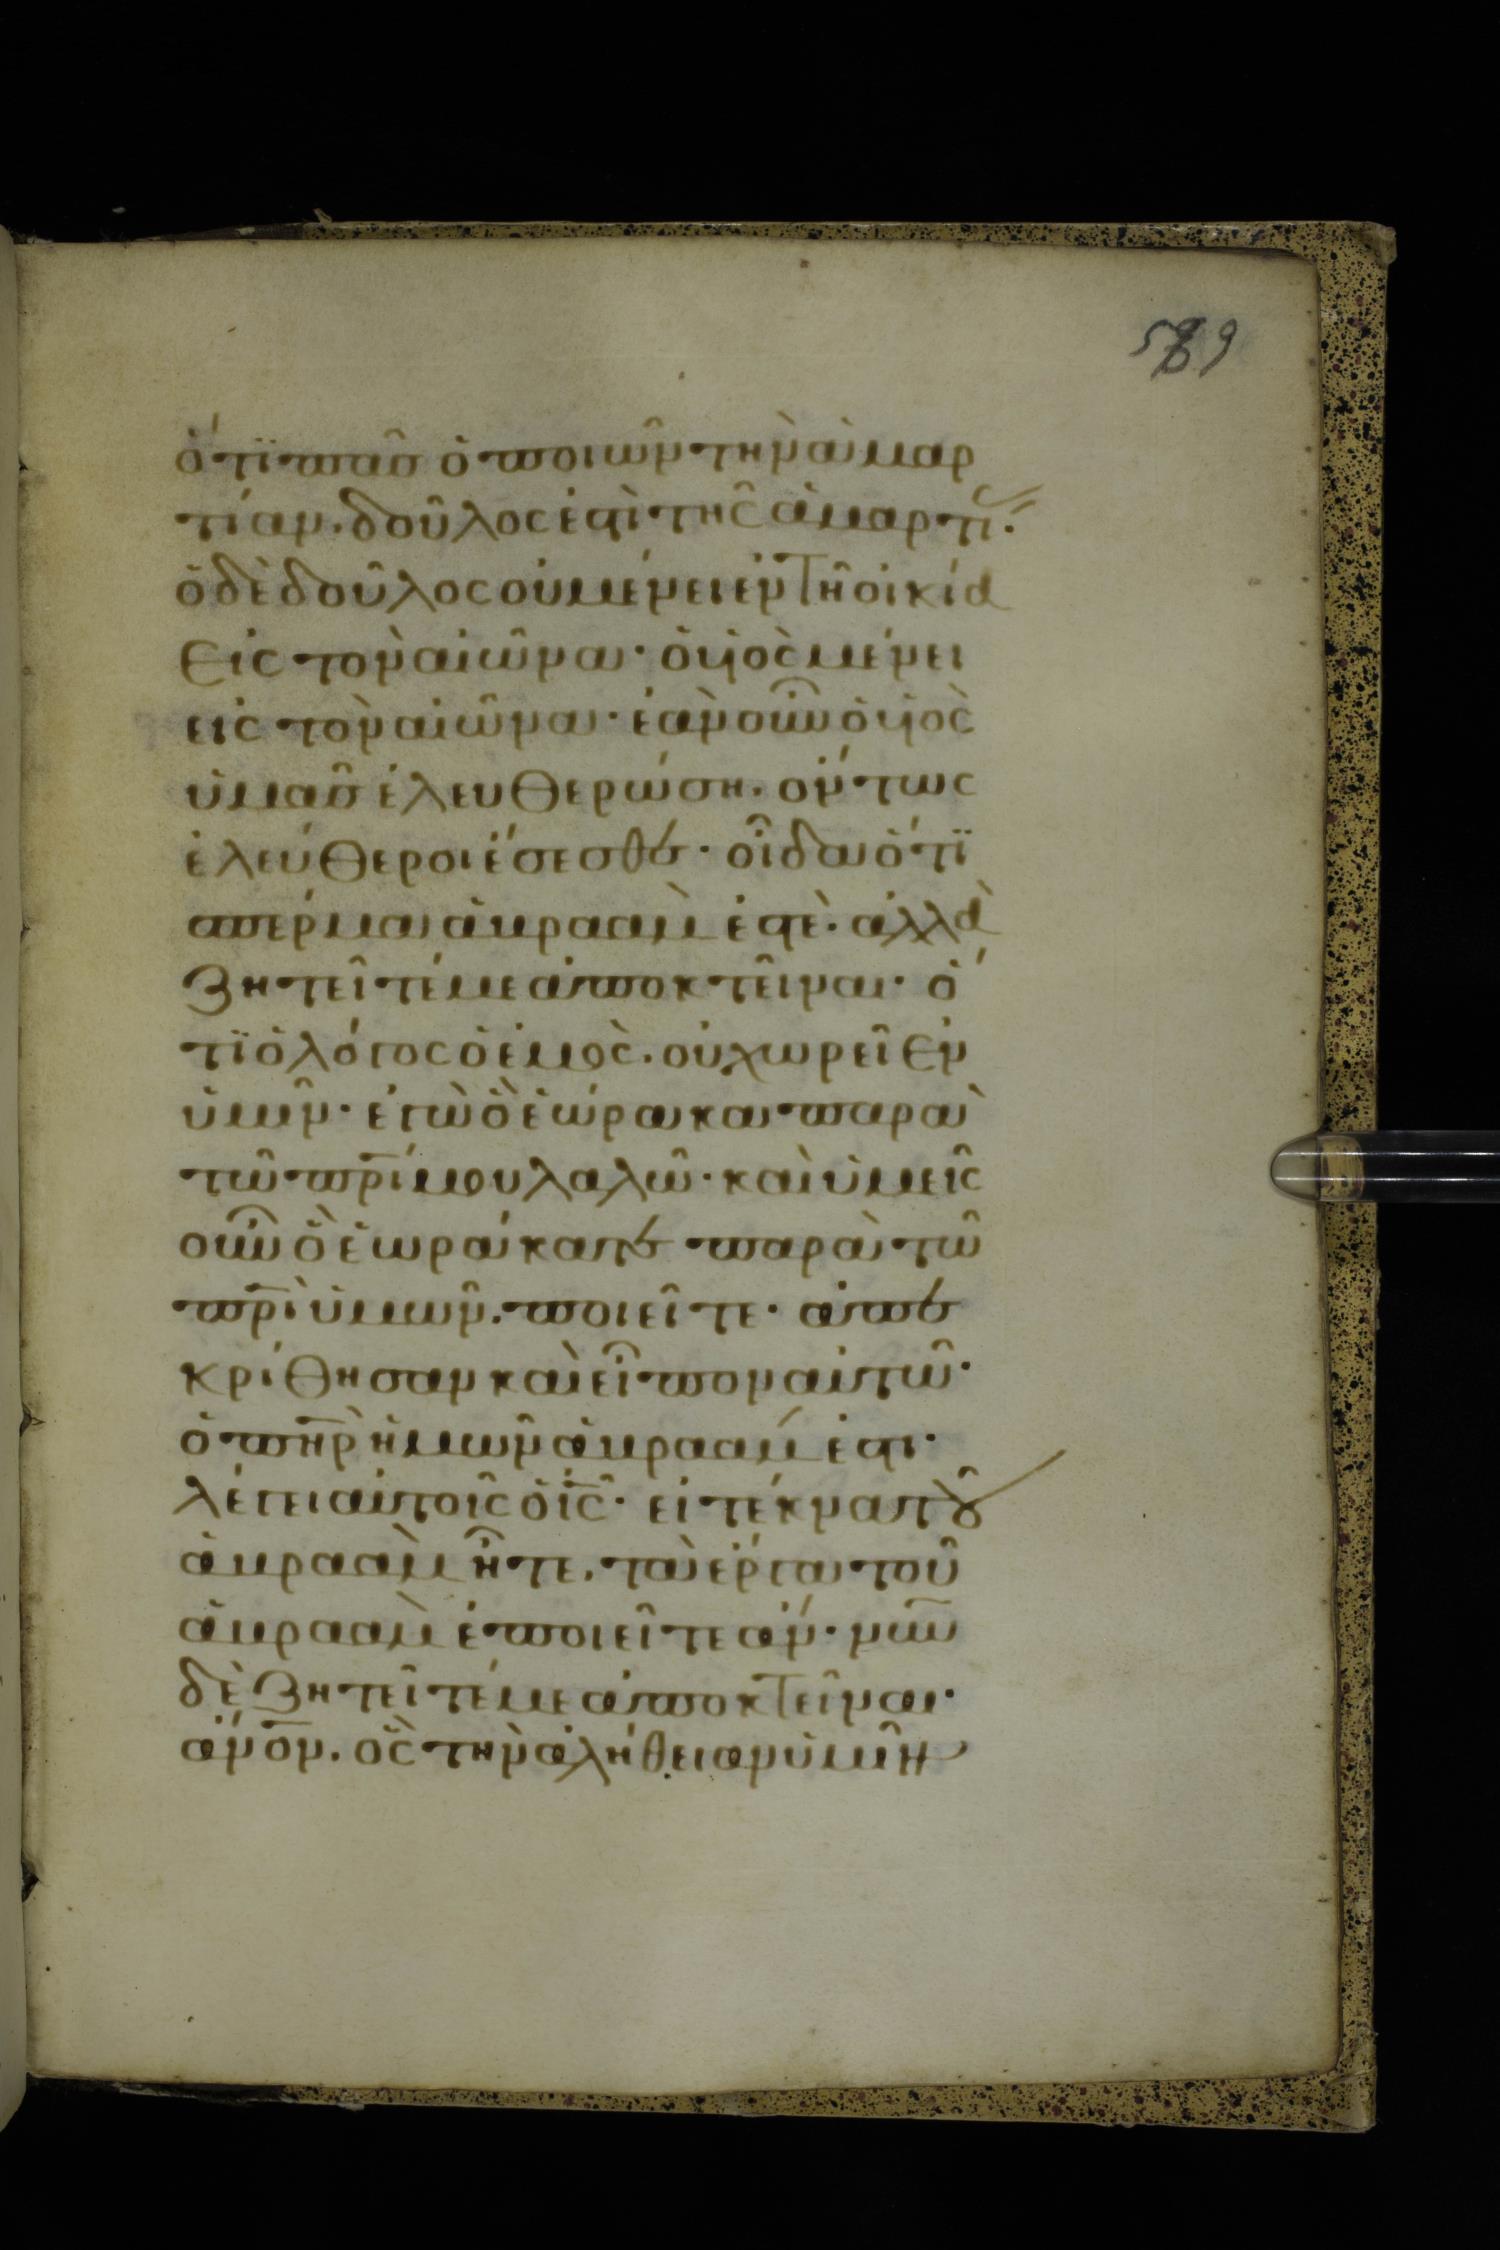 589
ὅτϊ πᾶσ ὁ ποιῶν τὴν ἁμαρ
τίαν. δοῦλος ἐστὶ τῆς ἁμαρτί.
ὁ δὲ δοῦλος οὐ μένει ἐν τῆ οἰκία
εἰς τὸν αἰῶνα· ὁ υἱὸς μένει
εἰς τὸν αἰῶνα· ἐὰν οὖν ὁ υἱὸς
ὑμᾶσ ἐλευθερώση. ὄντως
ἐλεύθεροι ἔσεσθε· οἶδα ὅτϊ
σπέρμα ἁβραὰμ ἐστὲ· ἀλλὰ
ζητεῖτέ με ἀποκτεῖναι· ὅ
τϊ ὁ λόγος ὁ ἐμὸς. οὐ χωρεῖ ἐν
ὑμῖν· ἐγὼ ὃ ἑώρακα παρὰ
τῶ πρι μου λαλῶ· καὶ ὑμεῖς
οὖν ὃ ἑωράκατε παρὰ τῶ
πρὶ ὑμῶν. ποιεῖτε· ἀπε
κρίθησαν καὶ εἶπον αὐτῶ·
ὁ πηρ ἡμῶν ἁβραάμ ἐστι·
λέγει αὐτοῖς ὁ ις· εἰ τέκνα τοῦ
ἁβραὰμ ἦτε. τὰ ἔργα τοῦ
ἁβραὰμ ἐποιεῖτε ἄν· νῦν
δὲ ζητεῖτέ με ἀποκτεῖναι·
ἄνον. ὃς τὴν ἀλήθειαν ὑμῖν